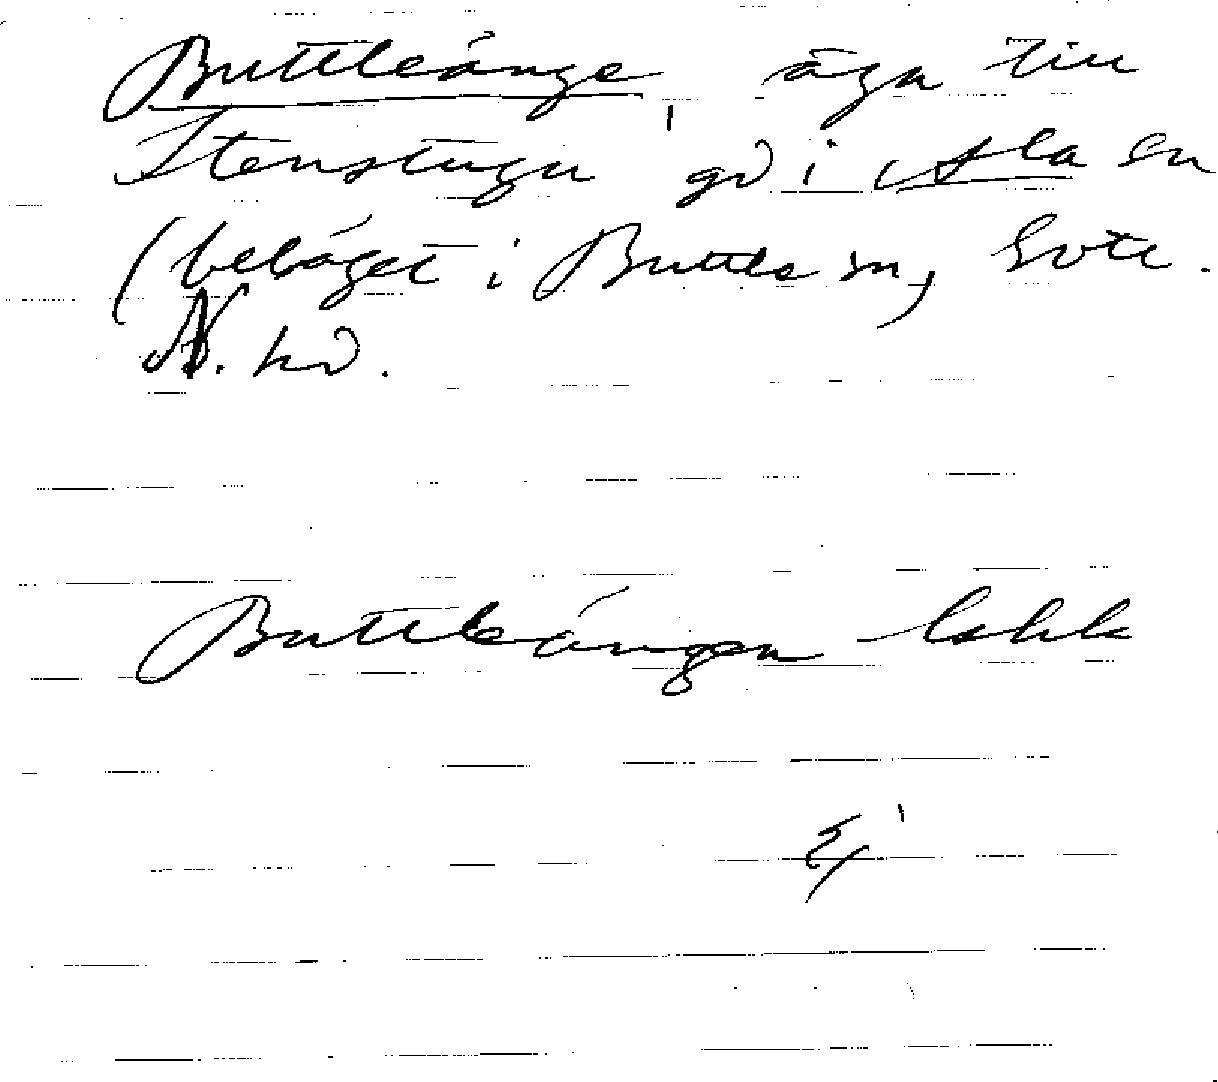 Buttleänge, äga till
Stenstugu gd i Ala sn
(beläget i Buttle sn, Gotl.
N. hd.
Buttleängen lskk
Ej